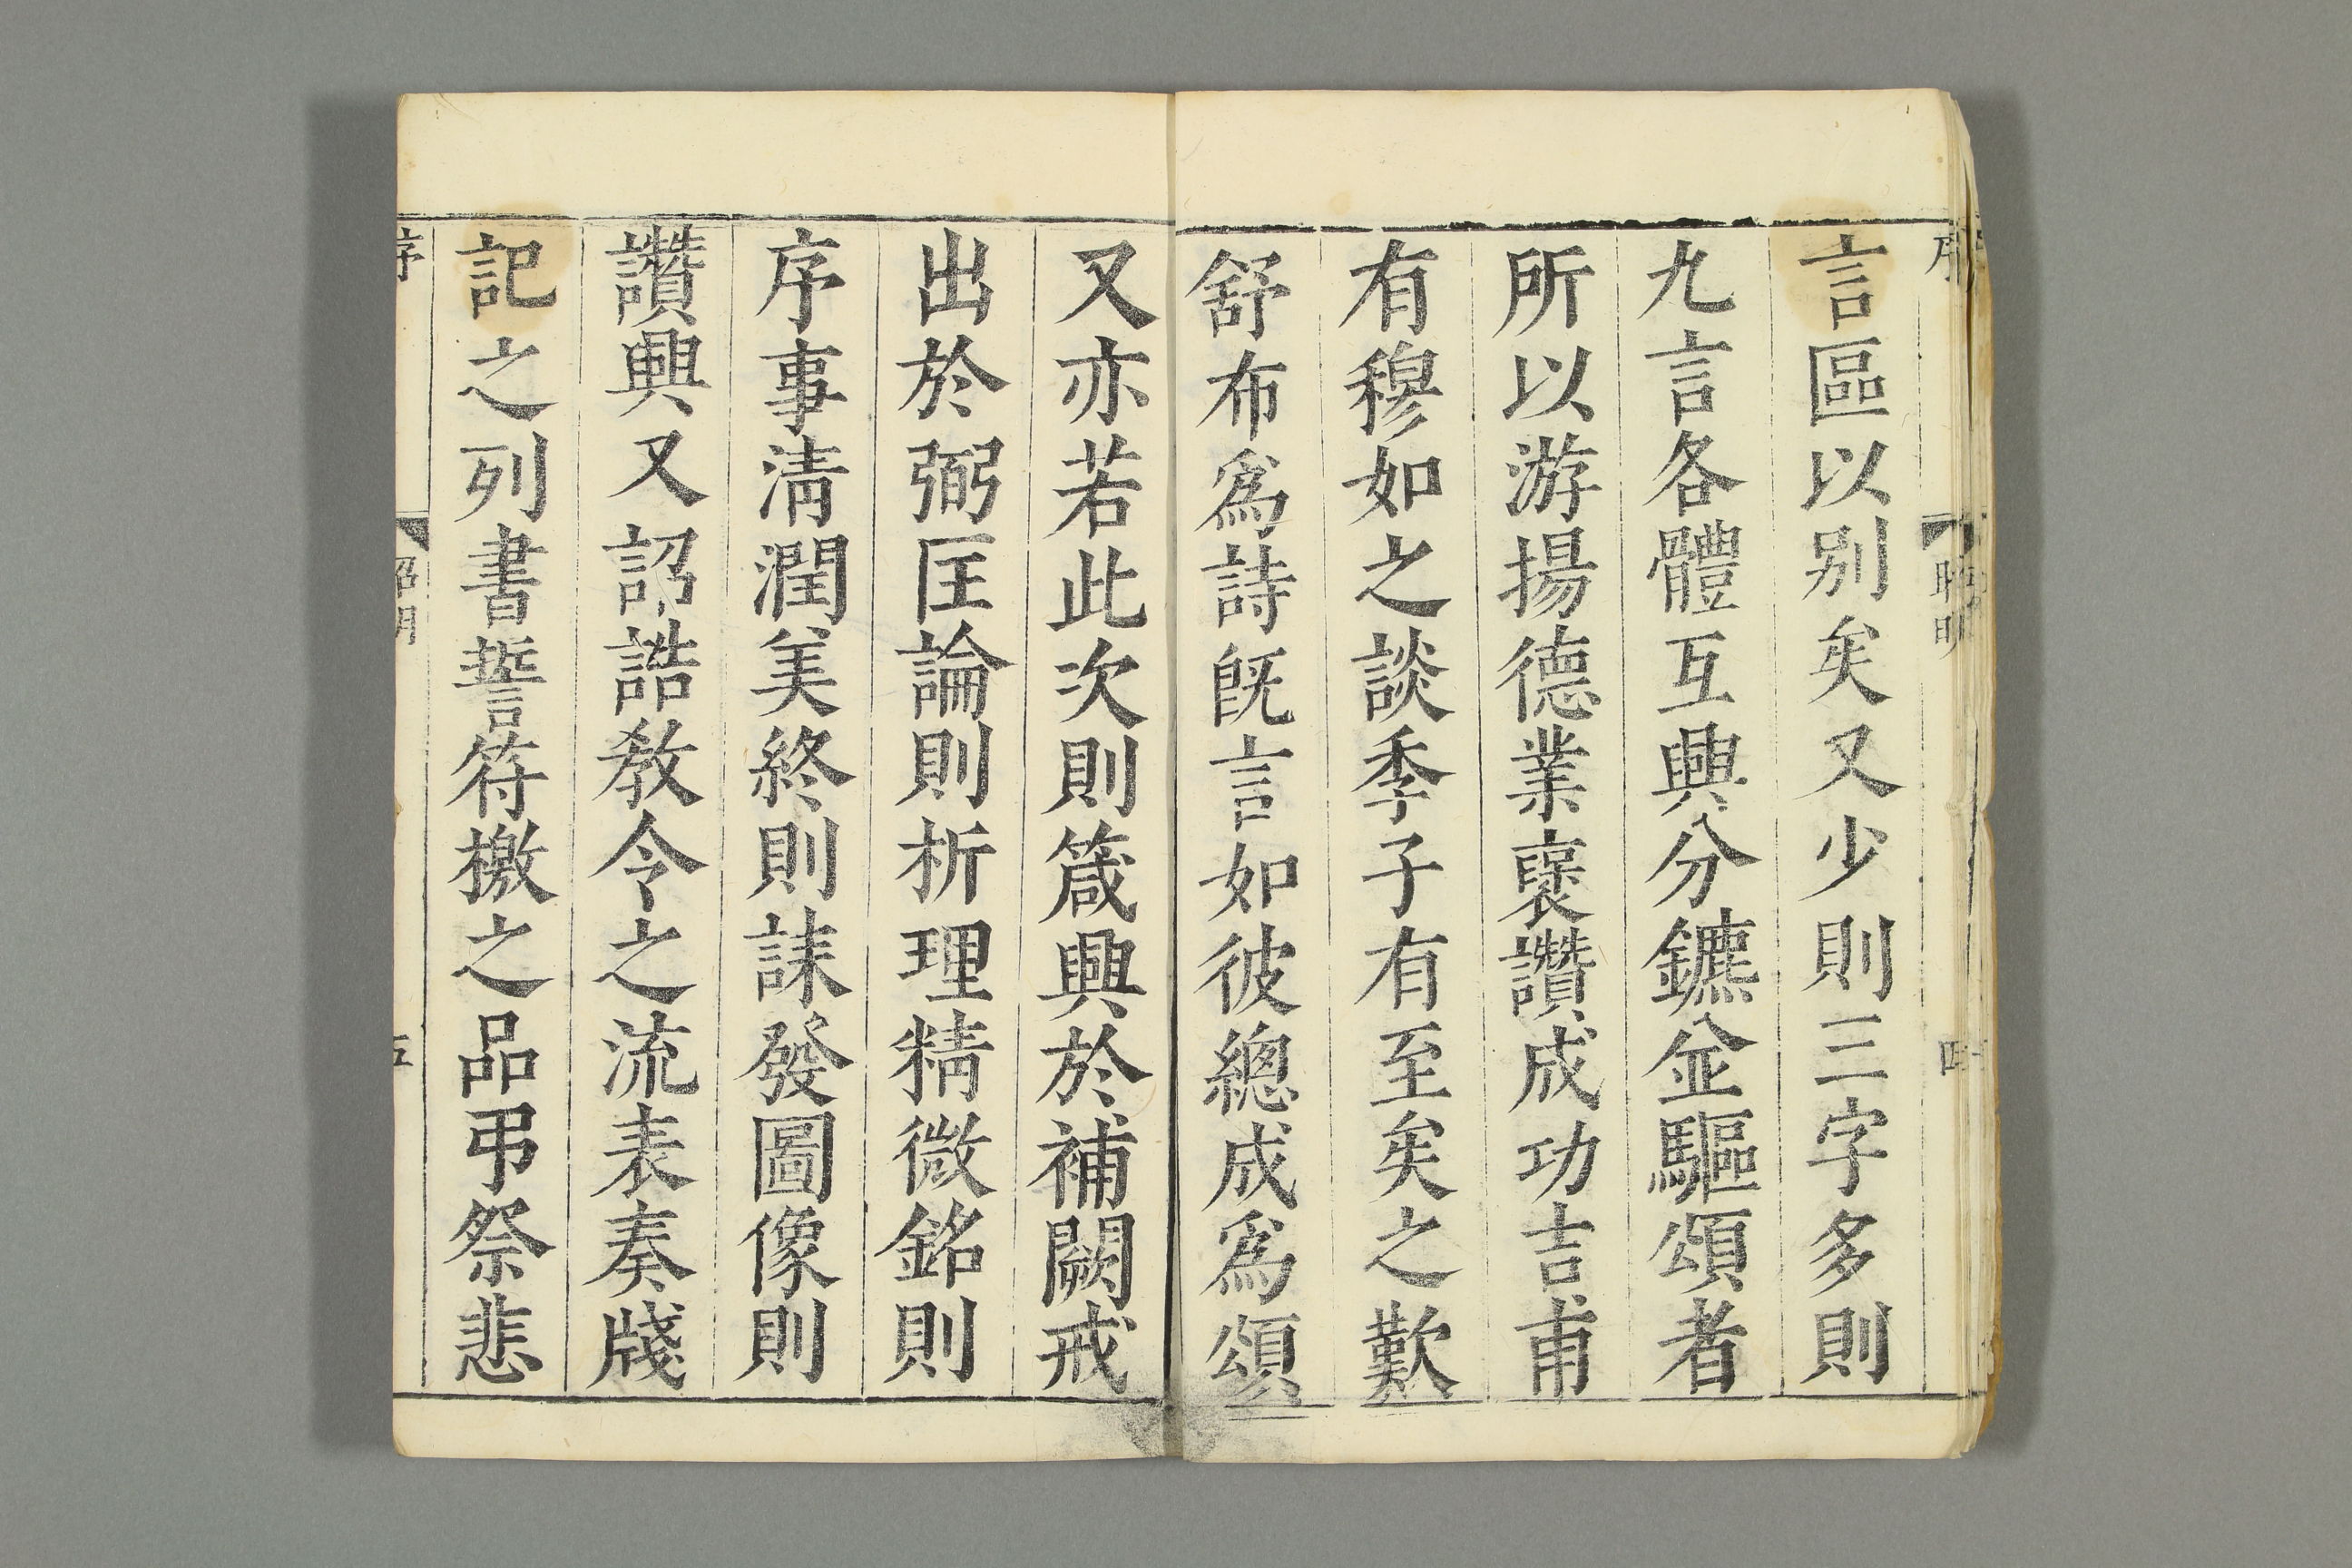 言區以别矣又少則三字多則
九言各體互興分鑣並驅頌者
所以游揚德業襃讚成功吉甫
有穆如之談季子有至矣之歎
舒布爲詩旣言如彼總成爲頌
又亦若此次則箴興於補闕戒
出於弼匡論則析理精微銘則
序事清潤美終則誄發圖像則
讚興又詔誥敎令之流表奏牋
記之列書誓符檄之品弔祭悲
序
昭明
五